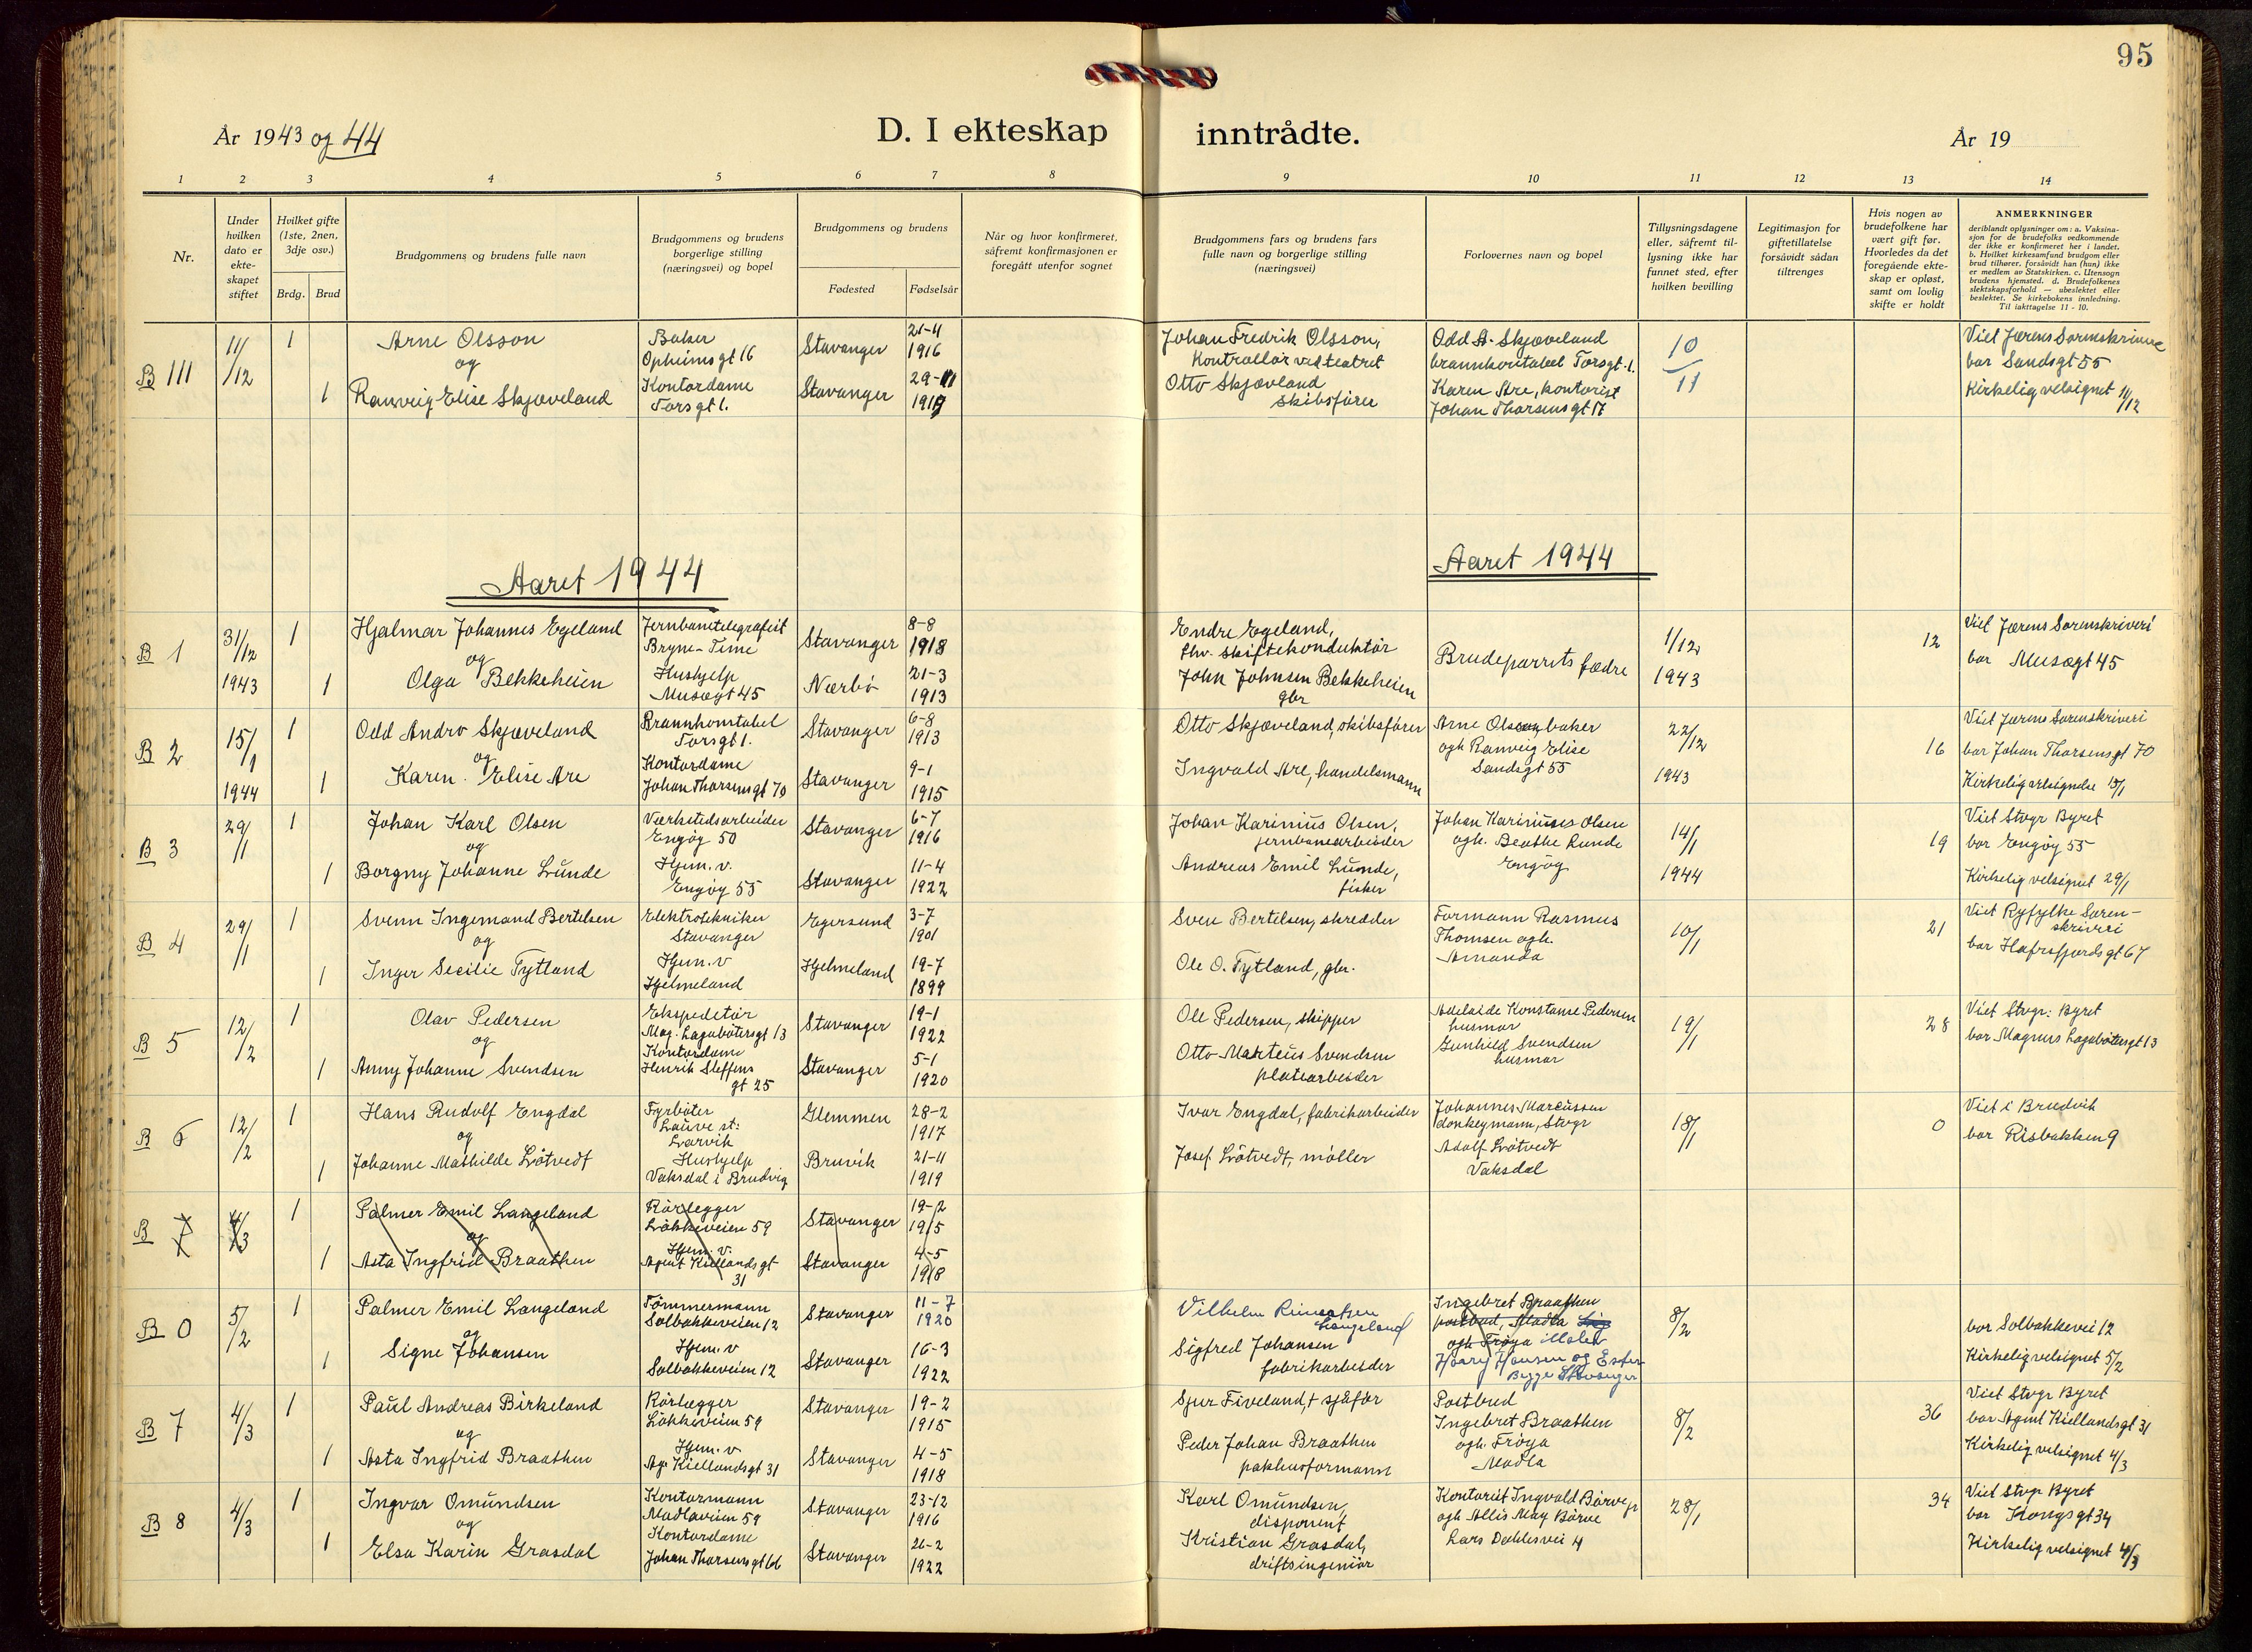 95
År 1943 og 44
D. I ekteskap inntrådte.
År 19
1 2 3 4 5 6 7 8 9 10 11 12 13 14
Nr.
Under
hvilken
dato er
ekte-
skapet
stiftet
Hvilket gifte
(1ste, 2nen,
3dje osv.)
Brdg. Brud
Brudgommens og brudens fulle navn
Brudgommens og brudens
borgerlige stilling
(næringsvei) og bopel
Brudgommens og brudens
Fødested Fødselsår
Når og hvor konfirmeret,
såfremt konfirmasjonen er
foregått utenfor sognet
Brudgommens fars og brudens fars
fulle navn og borgerlige stilling
(næringsvei)
Forlovernes navn og bopel
Tillysningsdagene
eller, såfremt til-
lysning ikke har
funnet sted, efter
hvilken bevilling
Legitimasjon for
giftetillatelse
forsåvidt sådan
tiltrenges
Hvis nogen av
brudefolkene har
vært gift før.
Hvorledes da det
foregående ekte-
skap er opløst,
samt om lovlig
skifte er holdt
ANMERKNINGER
deriblandt oplysninger om: a. Vaksina-
sjon for de brudefolks vedkommende
der ikke er konfirmeret her i landet.
b. Hvilket kirkesamfund brudgom eller
brud tilhører, forsåvidt han (hun) ikke
er medlem av Statskirken. c. Utensogn
brudens hjemsted. d. Brudefolkenes
slektskapsforhold — ubeslektet eller
beslektet. Se kirkebokens innledning.
Til iakttagelse 11 - 10.
B 111
11/12
1
Arne Olsson
og
1
Ranveig Elise Skjæveland
Baker
Opheimsgt 16
Kontordame
Torsgt 1.
Stavanger
Stavanger
21-4
1916
29-11
Johan Fredrik Olsson,
Kontrollør ved teatret
Otto Skjævland
Skibsfører
Odd A. Skjæveland
brannkonstabel Torsgt. 1.
Karen Are, kontorist
Johan Thorsensgt 17
10
11
Viet Jærens Sorenskrive
bor Sandsgt 55
Kirkelig velsignet 11/12
Aaret 1944
Aaret 1944
B 1
31/12
1943
1
Hjalmar Johannes Egeland
og
1
Olga Bekkeheien
Jernbanetelegrafist
Bryne-Time
Hushjelp
Musægt 45
Stavanger
Nærbö
8-8
1918
21-3
1913
Endre Egeland,
fhv. skiftekonduktör
John Johnsen Bekkeheien
gbr
Brudeparrets fædre
1/12
1943
12
Viet Jærens Sorenskriveri
bor Musægt 45
B 2
15/1
1944
1
Odd Andro Skjæveland
og
1
Karen. Elise Are
Brannkonstabel
Torsgt 1.
Kontordame
Johan Thorsensgt 70
Stavanger
Stavanger
6-8
1913
9-1
1915
Otto Skjæveland, skibsfører
Ingvald Are, handelsmann
Arne Olsson, baker
ogh Ranveig Elise
Sandsgt 55
22/12
1943
16
Viet Jærens Sorenskriveri
bor Johan Thorsensgt 70
Kirkelig velsignelse 15/1
B 3
29/1
1
Johan Karl Olsen
og
1
Borgny Johanne Lunde
Værkstedsarbeider
Engöy 50
Hjem. v.
Engöy 55
Stavanger
Stavanger
6-7
1916
11-4
1922
Johan Karinius Olsen,
jernbanearbeider
Andreas Emil Lunde,
fisker
Johan Karinius Olsen
ogh. Beathe Lunde
Engöy
14/1
1944
19
Viet Stvgr Byret
bor Engöy 55
Kirkelig velsignet 29/1
B 4
29/1
1
Svenn Ingemand Bertelsen
og
1
Inger Secilie Tytland
Elektrotekniker
Stavanger
Hjem. v
Hjelmeland
Egersund
Hjelmeland
3-7
1901
19-7
1899
Sven Bertelsen, skredder
Ole O. Tytland, gbr.
Formann Rasmus
Thomsen ogh.
Amanda
10/1
21
Viet Ryfylke Soren-
skriveri
bor Hafrsfjordsgt 67
B 5
12/2
1
Olav Pedersen
og
1
Anny Johanne Svendsen
Ekspeditör
Mag. Lagabötersgt 13
Kontordame
Henrik Steffens
gt 25
Stavanger
Stavanger
19-1
1922
5-1
1920
Ole Pedersen, skipper
Otto Marteus Svendsen
platearbeider
Adelaide Konstanse Pedersen
husmor
Gunhild Svendsen
husmor
19/1
28
Viet Stvgr: Byret
bor Magnus Lagabötersgt 13
B 6
12/2
1
Hans Rudolf Engdal
og
1
Johanne Mathilde Lötvedt
Fyrböter
Lauve st:
Larvik
Hushjelp
Vaksdal i Brudvig
Glemmen
Bruvik
28-2
1917
21-11
1919
Ivar Engdal, fabrikarbeider
Josef Lötvedt, möller
Johannes Marcussen
donkeymann, Stvgr
Adolf Lötvedt
Vaksdal
18/1
0
Viet i Brudvik
bor Risbakken 9
B 7
4/3
1
Palmer Emil Langeland
og
1
Asta Ingfrid Braathen
Rörlegger
Lökkeveien 59
Hjem. v.
Agent Kiellandsgt
31
Stavanger
Stavanger
19-2
1915
4-5
1918
B 0
5/2
1
Palmer Emil Langeland
og
1
Signe Johansen
Tömmermann
Solbakkeveien 12
Hjem. v
Solbakkeveien 12
Stavanger
Stavanger
11-7
1920
16-3
1922
Vilhelm
Langeland
Sigfred Johansen
fabrikarbeider
Ingebret Braathen
postbud, Madla
ogh Fröya
Harry Hansen og Ester
Begge Stavanger
8/2
bor Solbakkevei 12
Kirkelig velsignet 5/2
B 7
4/3
1
Paul Andreas Birkeland
og
1
Asta Ingfrid Braathen
Rörlægger
Lökkeveien 59
Hjem. v
Ag. Kiellandsgt 31
Stavanger
Stavanger
19-2
1915
4-5
1918
Sjur Fiveland, + sjåför
Peder Johan Braathen
pakhusformann
Postbud
Ingebret Braathen
ogh. Fröya
Madla
8/2
36
Viet Stvgr Byret
bor Agent Kiellandsgt 31
Kirkelig velsignet 4/3
B 8
4/3
1
Ingvar Omundsen
og
1
Elsa Karin Grasdal
Kontormann
Madlaveien 59
Kontordame
Johan Thorsensgt 66
Stavanger
Stavanger
23-12
1916
26-2
1922
Karl Omundsen,
disponent
Kristian Grasdal,
driftsingeniör
Kontorist Ingvald Börve
ogh Allis May Börve
Lars Dahlesvei 4
28/1
34
Viet Stvgr Byret
bor Kongsgt 34
Kirkelig velsignet 4/3